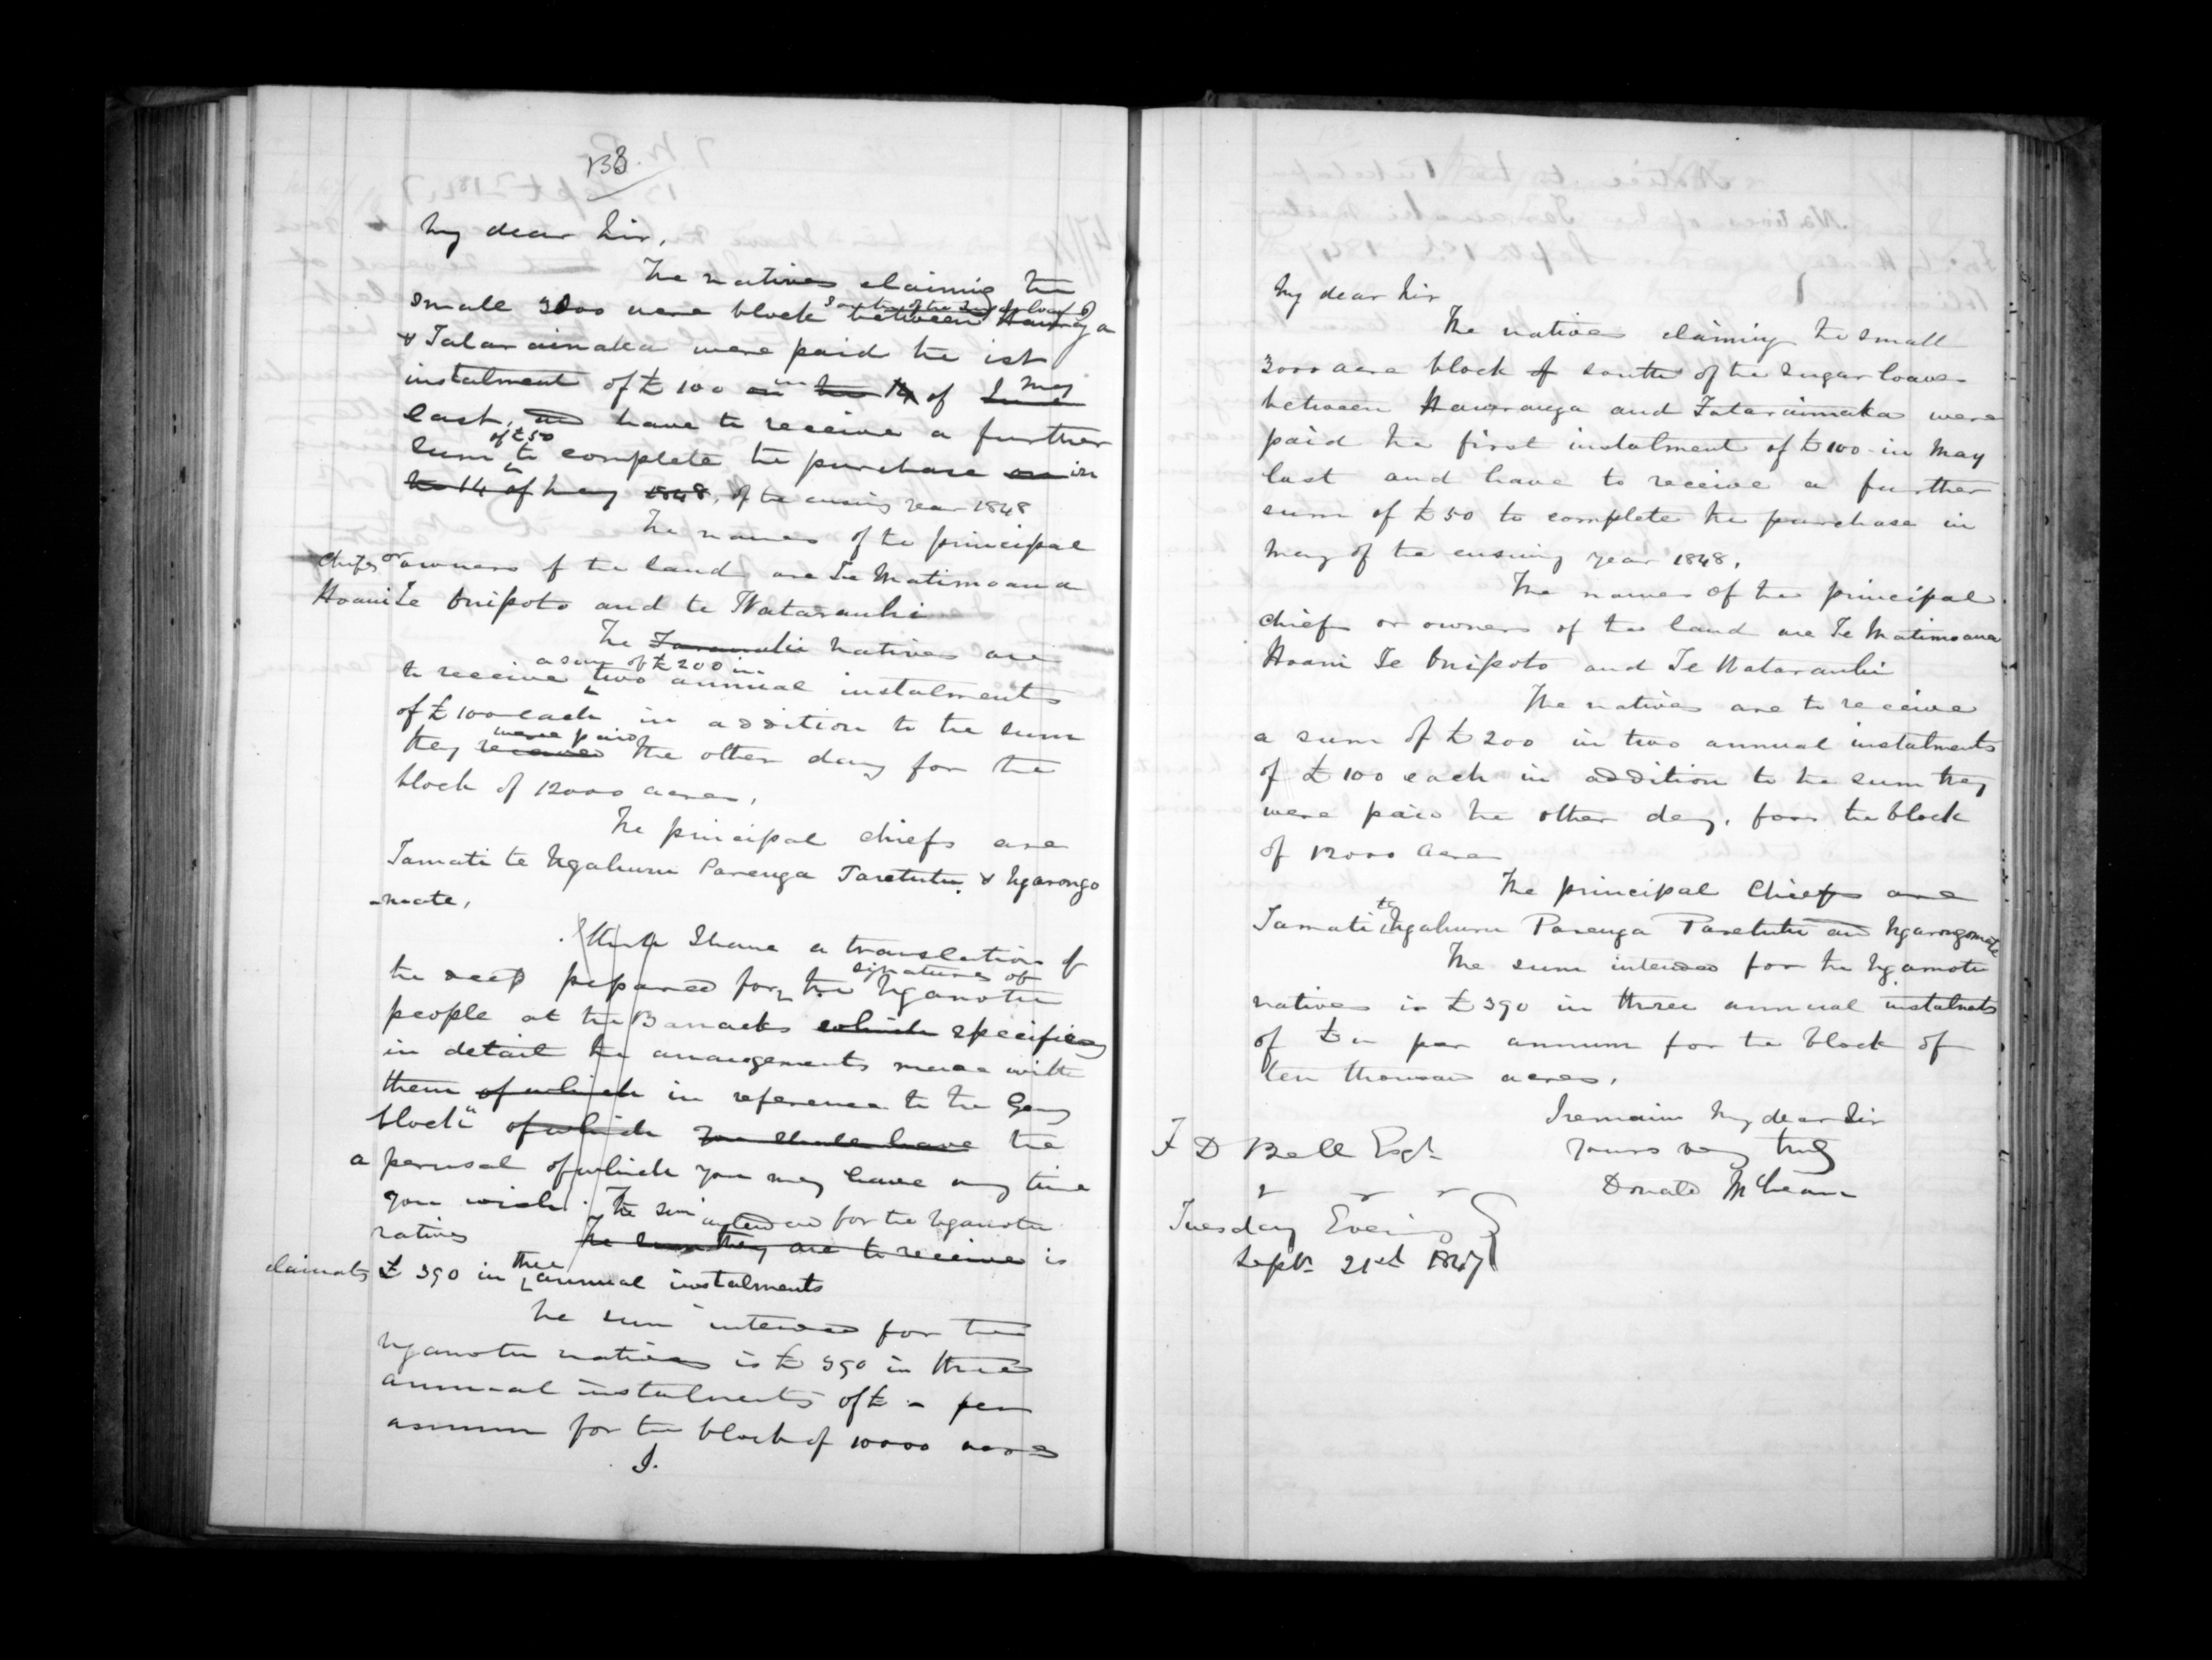 138.
My dear Sir,
The natives claiming the
South of the Sugar loaves
small 3000 acre block between Hauranga
& Tataraimaka were paid the 1st
instalment of £ 100 on in the 14 of June May
last, and have to receive a further
of £50
sum to complete the purchase on in
the 14 of May 1848, of the ensuing year 1848
The names of the principal
chiefs or owners of the land are Te Matimoana
Hoani Te Onipoto and te Watarauhi
The Taranaki Natives are
a sum of £ 200 in
to receive two annual instalments
of £ 100 each in addition to the sum
were paid
they received the other day for the
block of 12000 acres,
The principal chiefs are
Tamati te Ngahuru Parenga Paretutu & Ngarongo
-mate,
I have a translation of
signatures of
the deed prepared for the Nganotu
people at the Barracks which specifies
in detail the arrangements made with
them of which in reference to the Grey
block" of which you shall have the
a perusal of which you may have any time
you wish. The sum intended for the Ngamotu
natives the sum they are to receive is
three
claimants £ 390 in annual instalments
The sum intended for the
Ngamotu natives is £ 390 in three
annual instalments of £ - per
annum for the block of 10000 acres
I.
My dear Sir
The natives claiming the small
3000 acre block of south of the Sugar loaves
between Hauranga and Tataraimaka were
paid the first instalment of £ 100 in May
last and have to receive a further
sum of £ 50 to complete the purchase in
May of the ensuing year 1848,
The names of the principal
chiefs or owners of the land are Te Matimoana
Hoani Te Onipoto and Te Watarauhi
The natives are to receive
a sum of £ 200 in two annual instalments
of £ 100 each in addition to the sum they
were paid the other day, for the block
of 12000 acres
The principal Chiefs are
te
Tamati Ngahuru Parenga Paretutu and Ngarongomate
The sum intended for the Ngamotu
natives is £ 390 in three annual instalments
of £ " per annum for the block of
ten thousand acres,
I remain My dear Sir
F D Bell Esqr. yours very truly
Donald McLean
Tuesday Evening
Septr. 21st 1847